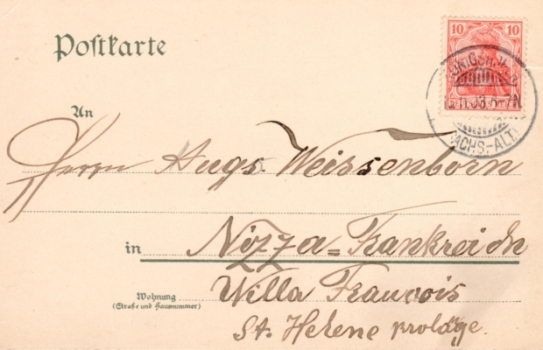 Postkarte
10 10
5-7N
(SACHS.-ALT.)
An
Herrn Aug. Weissenborn
in Nizza=Frankreich
Wohnung
(Straße und Hausnummer)
Willa Francois
St. Helene prolàge.